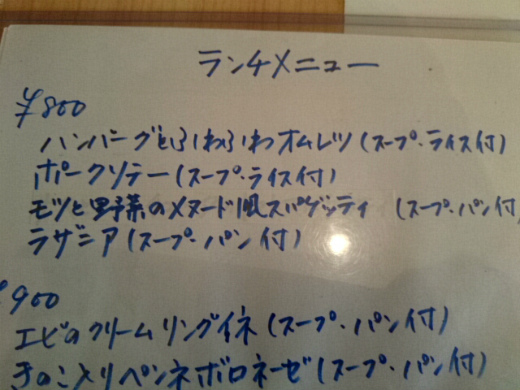 ランチメニュー
¥800
ハンバーグとふわふわオムレツ(スープ・ライス付)
ポークソテー(スープ・ライス付)
モツと野菜のメヌード風スパゲッティ (スープ・パン付
ラザニア(スープ・パン付)
900
エビのクリームリングイネ(スープ・パン付)
きのこ入りペンネボロネーゼ(スープ・パン付)